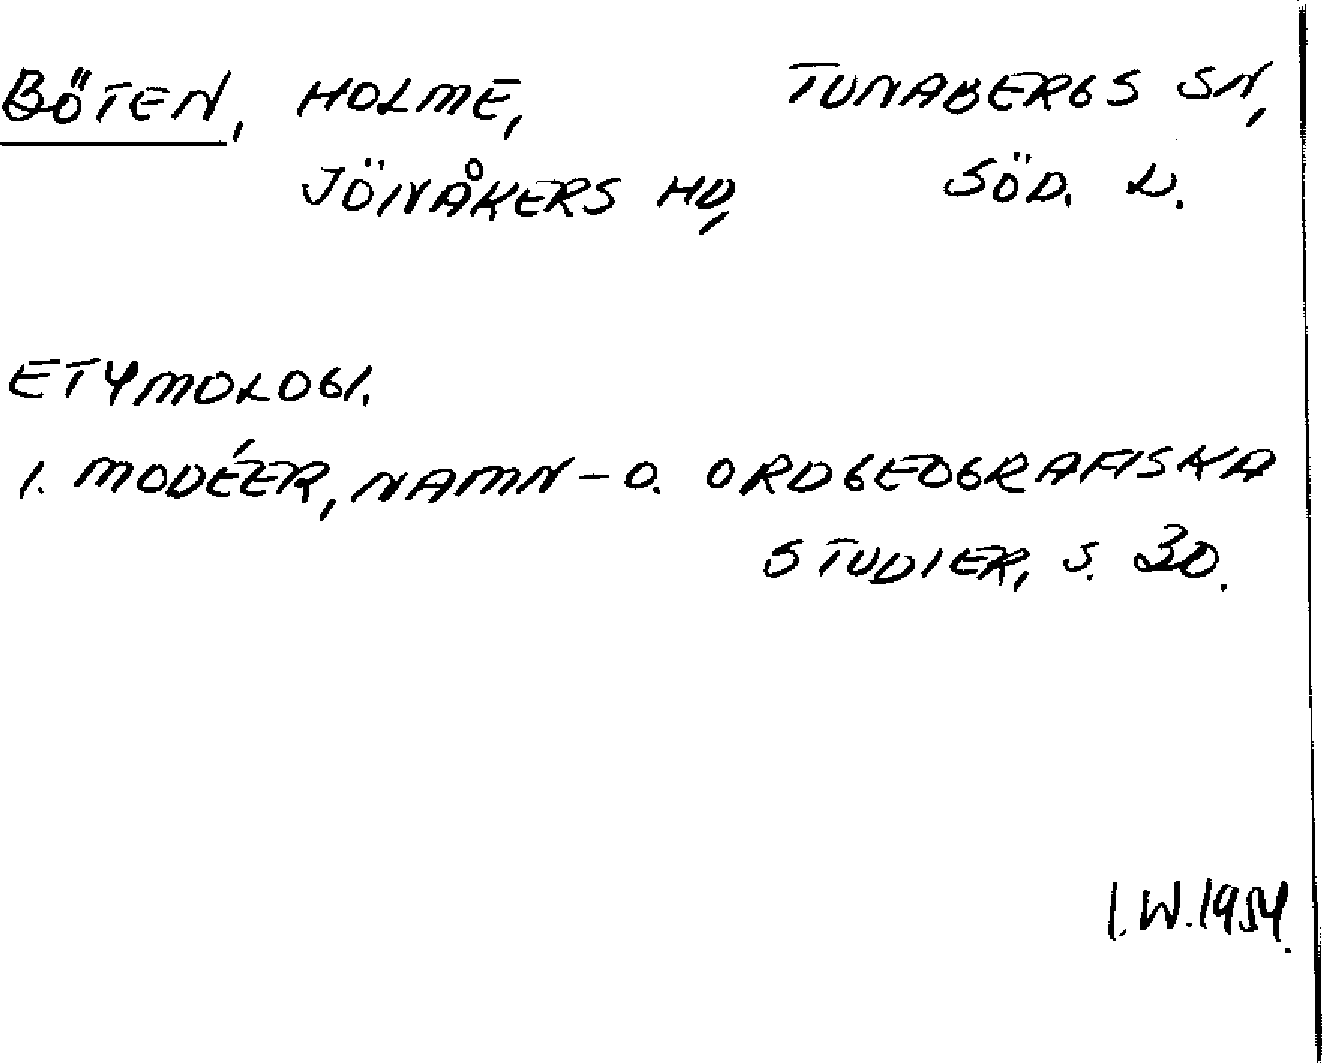 BÖTEN, HOLME, TUNABERGS SN,
JÖNÅKERS HD, SÖD. L.
ETYMOLOGI.
I. MODÉER, NAMN- O. ORDGEOGRAFISKA
STUDIER, S. 30.
I.W. 1954.